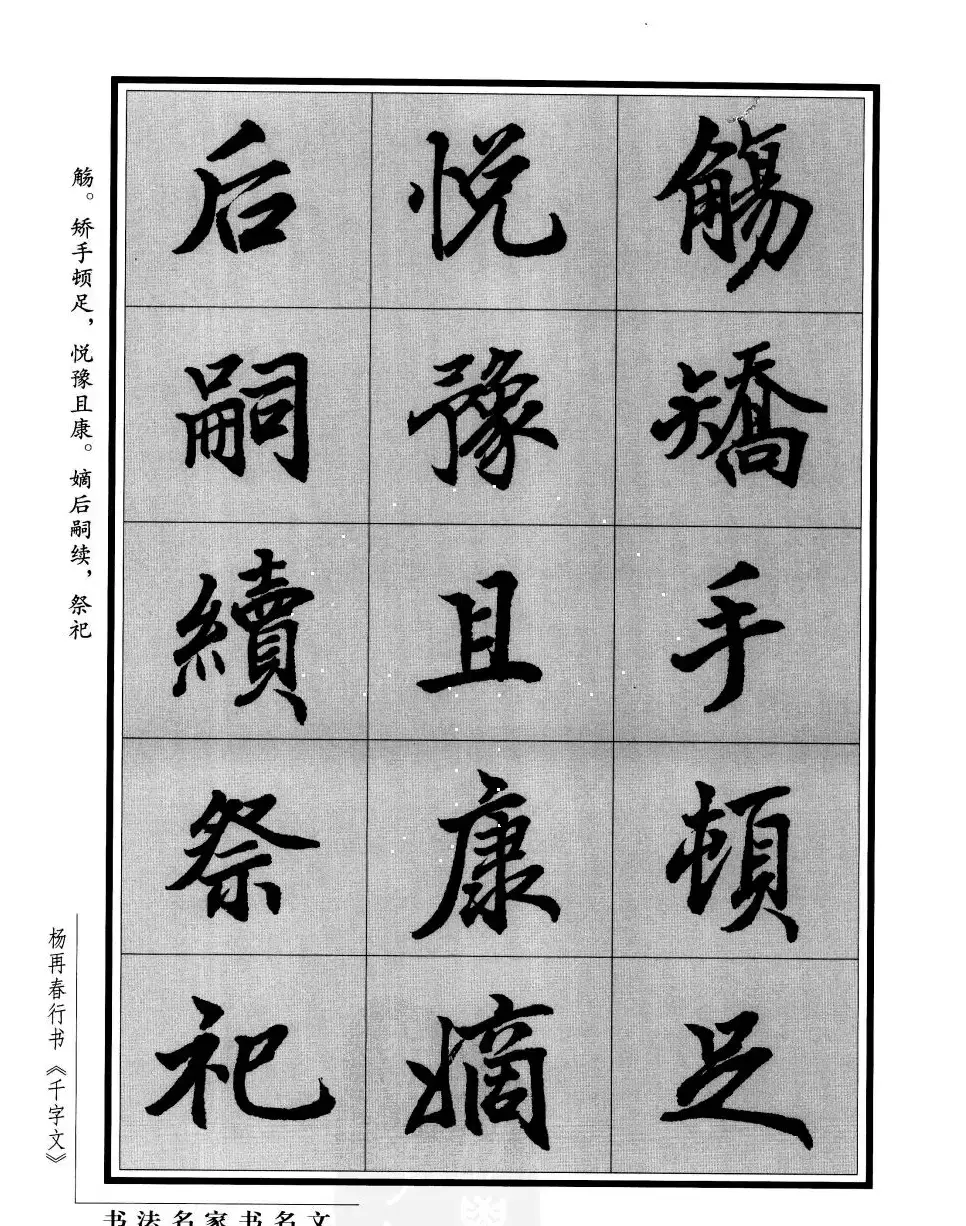 觴矯手頓足
悦豫且康嫡
后嗣續祭祀
觞。矫手顿足，悦豫且康。嫡后嗣续，祭祀
杨再春行书《千字文》
书法名家书名文